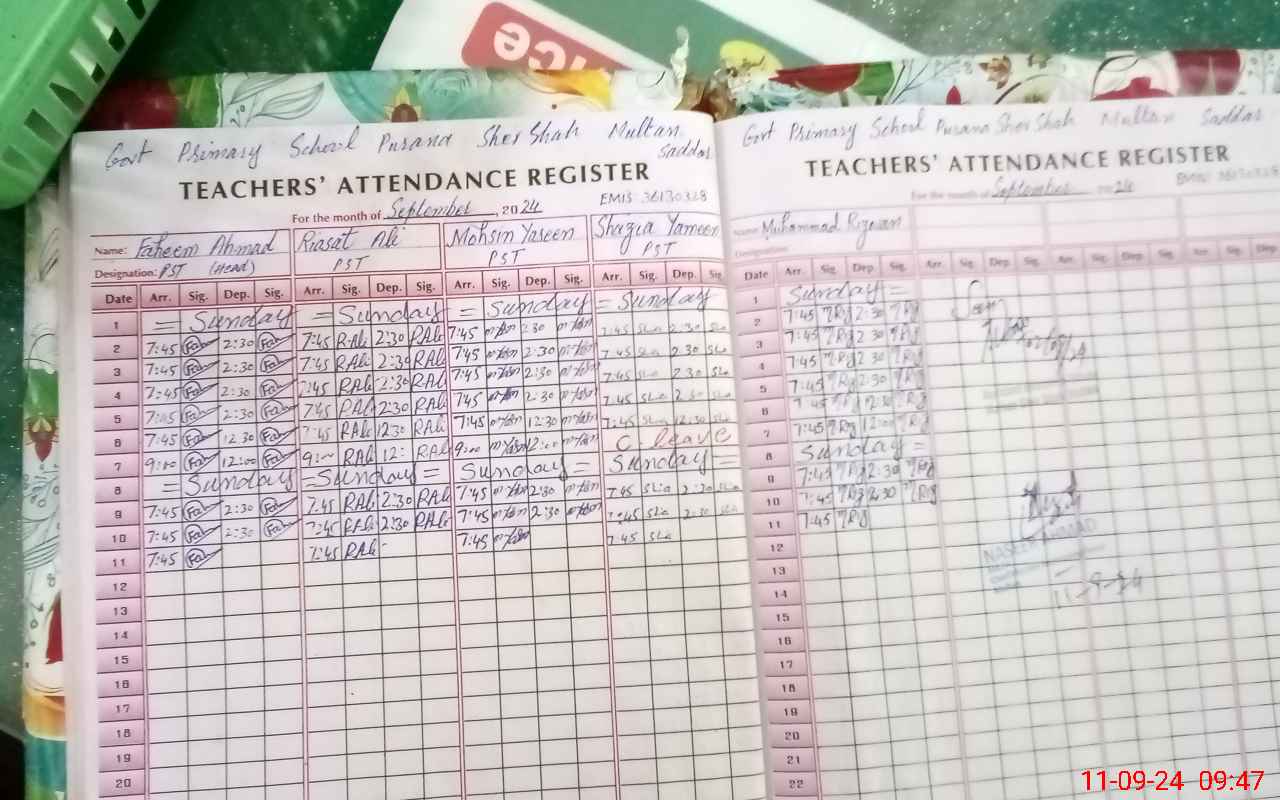 Govt Primary School Purana Sher Shah Multan Saddar
TEACHERS' ATTENDANCE REGISTER
EMIS: 36130328
For the month of September, 2024
Name: Faheem Ahmad Riasat Ali Mohsin Yaseen Shazia Yameen
Designation: PST (Head) PST PST PST
Date Arr. Sig. Dep. Sig. Arr. Sig. Dep. Sig. Arr. Sig. Dep. Sig. Arr. Sig. Dep. Sig.
1 = Sunday = Sunday = Sunday = Sunday
2 7:45 Fa 2:30 Fa 7:45 R.Ali 2:30 RAli 7:45 2:30 7:45 Sha 2:30 Sha
3 7:45 Fa 2:30 Fa 7:45 RAli 2:30 RAli 7:45 2:30 7:45 Sha 2:30 Sha
4 7:45 Fa 2:30 Fa 7:45 RAli 2:30 RAli 7:45 2:30 7:45 Sha 2:30 Sha
5 7:45 Fa 2:30 Fa 7:45 RAli 2:30 RAli 7:45 2:30 7:45 Sha 2:30 Sha
6 7:45 Fa 12:30 Fa 7:45 RAli 12:30 RAli 7:45 12:30 7:45 Sha 12:30 Sha
7 9:00 Fa 12:00 Fa 9:00 RAli 12: RAli 9:00 12:00 C. leave
8 = Sunday = Sunday = Sunday = Sunday =
9 7:45 Fa 2:30 Fa 7:45 RAli 2:30 RAli 7:45 2:30 7:45 Sha 2:30 Sha
10 7:45 Fa 2:30 Fa 7:45 RAli 2:30 RAli 7:45 2:30 7:45 Sha 2:30 Sha
11 7:45 Fa 7:45 RAli 7:45 7:45 Sha
12
13
14
15
16
17
18
19
20
Govt Primary School Purana Sher Shah Multan Saddar
TEACHERS' ATTENDANCE REGISTER
For the month of September 2024 EMIS: 36130328
Name Muhammad Rizwan
Designation:
Date Arr. Sig. Dep. Sig. Arr. Sig. Dep. Sig. Arr. Sig. Dep. Sig. Arr. Sig. Dep.
1 Sunday =
2 7:45 Riz 2:30 Riz
3 7:45 Riz 2:30 Riz
4 7:45 Riz 2:30 Riz
5 7:45 Riz 2:30 Riz
6 7:45 Riz 12:30 Riz
7 7:45 Riz 12:00 Riz
8 Sunday =
9 7:45 Riz 2:30 Riz
10 7:45 Riz 2:30 Riz
11 7:45 Riz
12
13
14
15
16
17
18
19
20
21
22
NASEER AHMAD
11-9-24
11-09-24 09:47